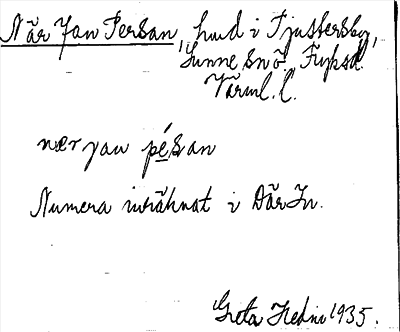 När Jan Persan, hmd i Tjustersby,
Sunne snö. Fryksd.
Värml. l.
nær yan pésan
Numera inräknat i Där In.
Greta Hedin 1935.